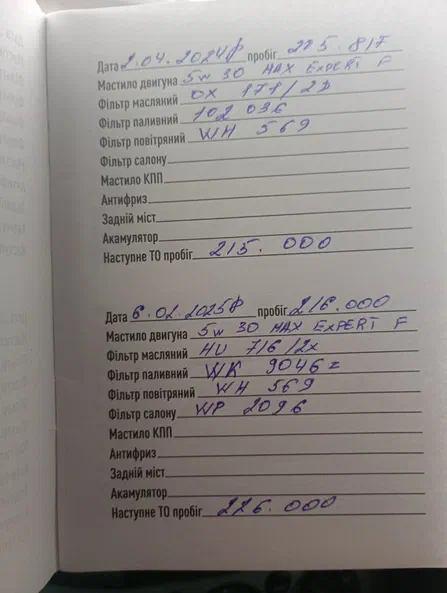 Дата 2.04.2024р пробіг 205.817
Мастило двигуна 5w 30 MAX EXPERT F
Фільтр масляний OX 171/2D
Фільтр паливний 102 036
Фільтр повітряний WH 569
Фільтр салону
Мастило КПП
Антифриз
Задній міст
Акамулятор
Наступне ТО пробіг 215.000
Дата 6.02.2025р пробіг 216.000
Мастило двигуна 5w 30 MAX EXPERT F
Фільтр масляний HU 716/2x
Фільтр паливний WK 9046z
Фільтр повітряний WH 569
Фільтр салону WP 2096
Мастило КПП
Антифриз
Задній міст
Акамулятор
Наступне ТО пробіг 226.000